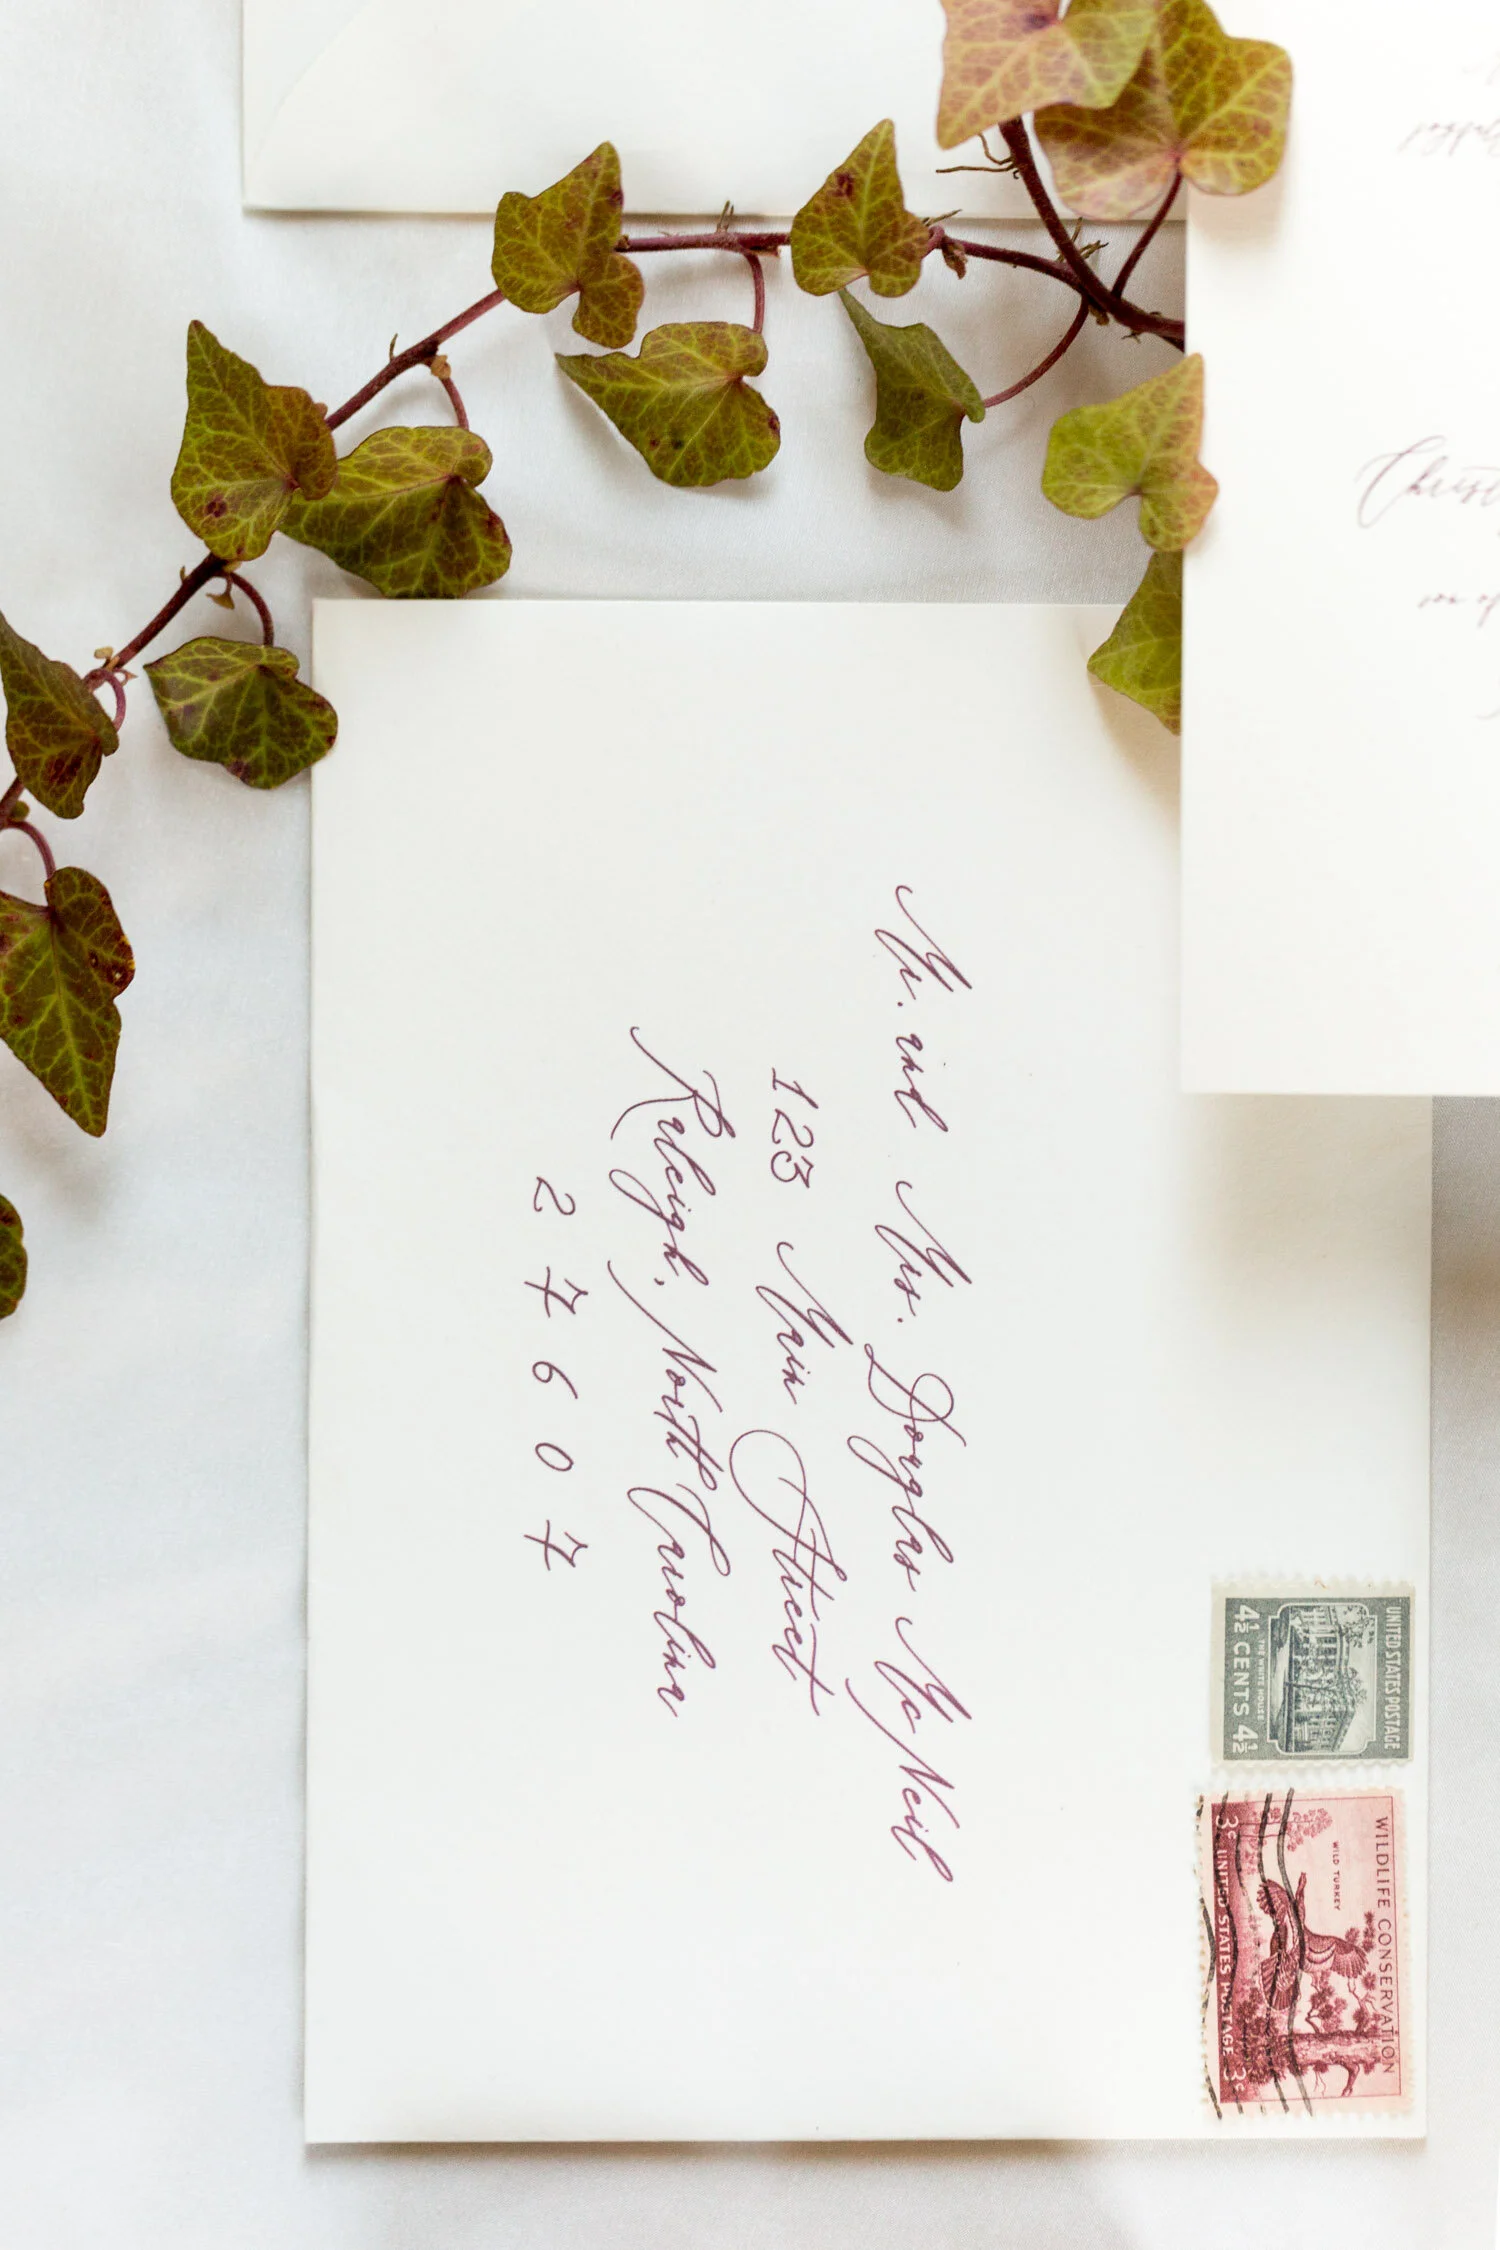 Mr. and Mrs. Douglas McNeil
123 Main Street
Raleigh, North Carolina
27607
UNITED STATES POSTAGE
THE WHITE HOUSE
4½ CENTS 4½
WILDLIFE CONSERVATION
WILD TURKEY
3¢ UNITED STATES POSTAGE 3¢